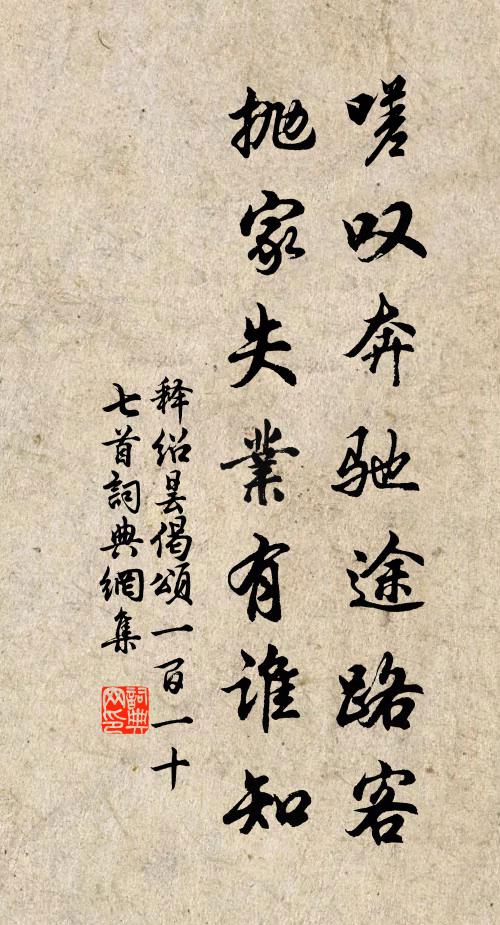 嗟叹奔驰途路客
抛家失業有谁知
释绍昙偈頌一百一十
七首詞典網集
詞典
网印